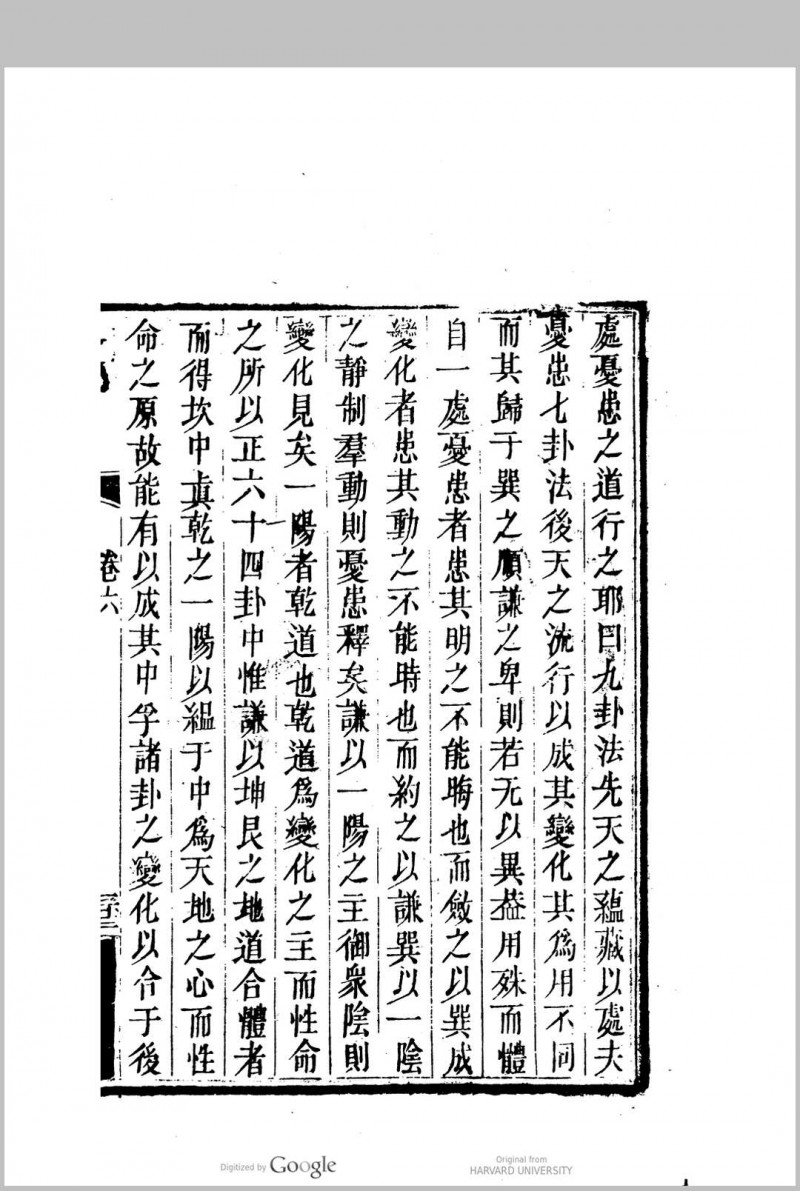 處憂患之道行之耶曰九卦法先天之蘊藏以處夫
憂患七卦法後天之流行以成其變化其爲用不同
而其歸于巽之順謙之卑則若无以異葢用殊而體
自一處憂患者患其明之不能晦也而斂之以巽成
變化者患其動之不能時也而約之以謙巽以一陰
之靜制羣動則憂患釋矣謙以一陽之主御衆陰則
變化見矣一陽者乾道也乾道爲變化之主而性命
之所以正六十四卦中惟謙以坤艮之地道合體者
而得坎中眞乾之一陽以縕于中爲天地之心而性
命之原故能有以成其中孚諸卦之變化以合于後
卷六
Digitized by Google
Original from
HARVARD UNIVERSITY